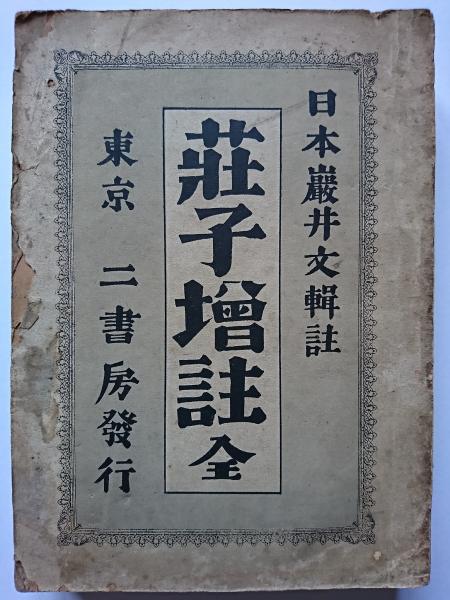 日本巖井文輯註
莊子增註全
東京 二書房發行